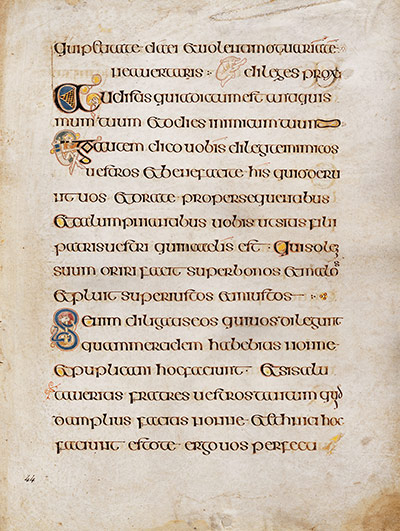 qui petit a te da ei et uolenti mutuari a te
ne auertaris diliges prox
Audistis quia dictum est antiquis
mum tuum et odies inimicum tuum
Ego autem dico uobis diligite inimicos
uestros et benefacite his qui oderu
nt uos et orate pro persequentibus
et calumpniantibus uobis ut sitis filii
patris uestri qui in caelis est Qui sole
suum oriri facit super bonos et malos
et pluit super iustos et iniustos
Si enim diligatis eos qui uos diligunt
quam mercedem habebitis nonne
et puplicani hoc faciunt Et si salu
taueritis fratres uestros tantum quid
amplius facitis nonne et ethnici hoc
faciunt estote ergo uos perfecti
44